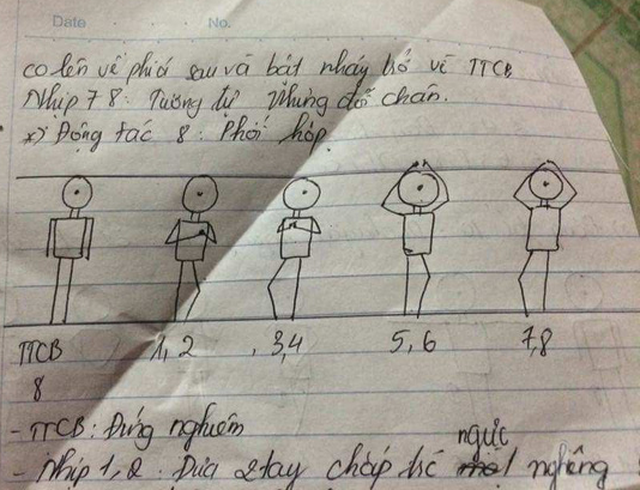 Date No.
co lên về phía sau và bật nhảy trở về TTCB
Nhịp 7 8: Tương tự nhưng đổi chân.
*) Động tác 8: Phối hợp.
TTCB 1, 2 , 3,4 5, 6 7,8
8
- TTCB: Đứng nghiêm
ngực
- Nhịp 1, 2. Đưa 2 tay chắp nghiêng